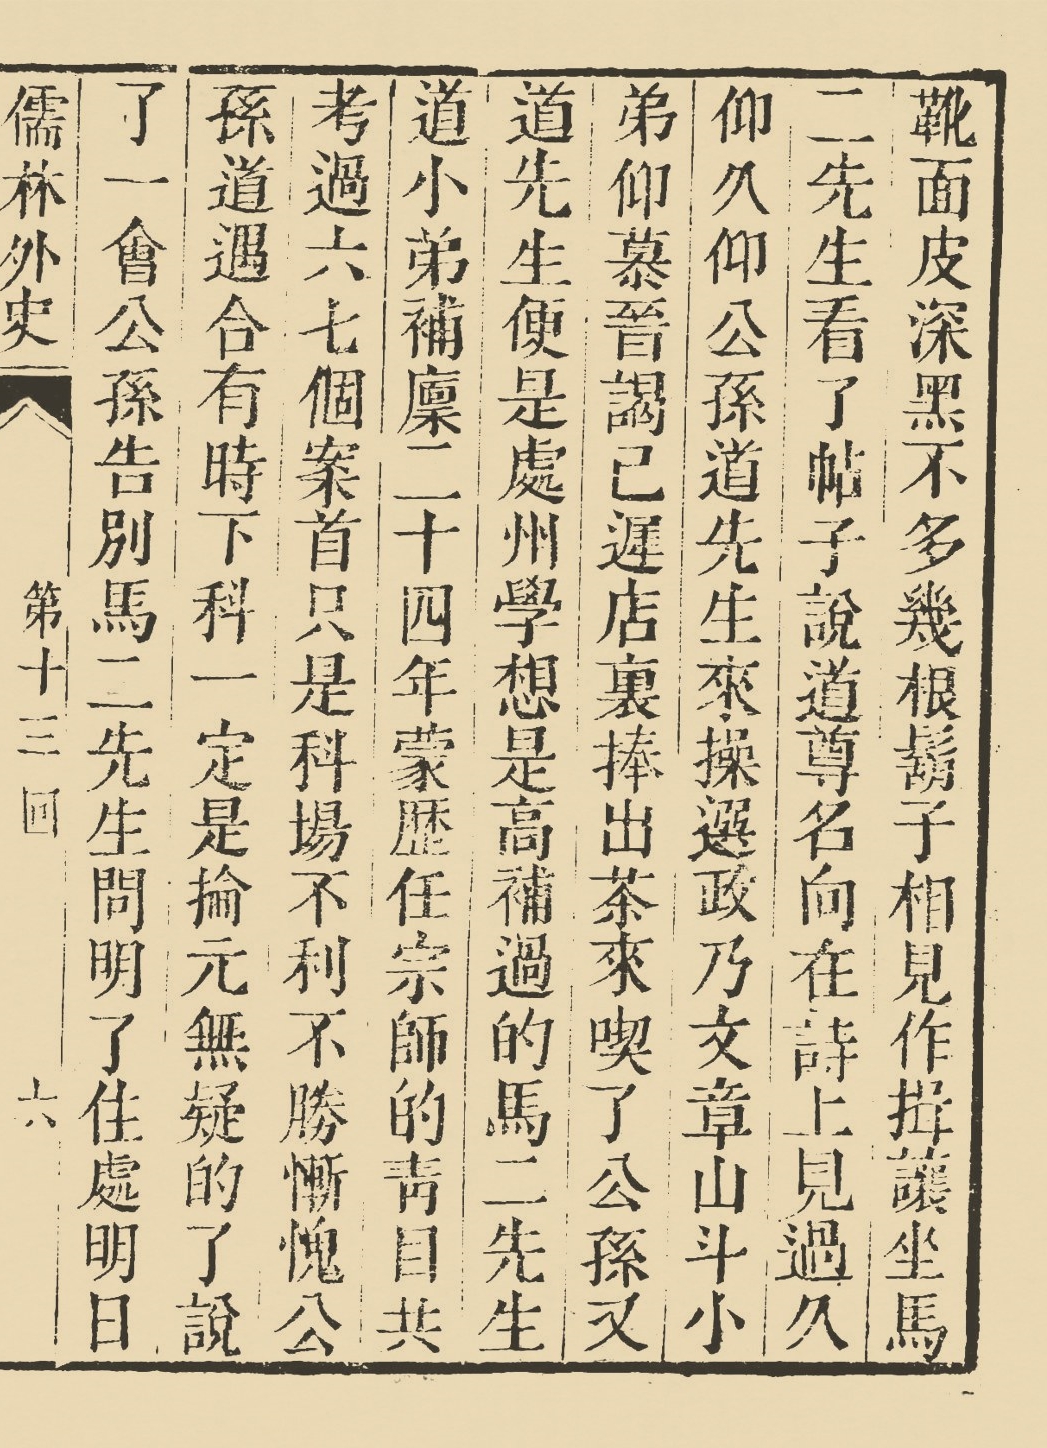 靴面皮深黑不多幾根鬍子相見作揖讓坐馬
二先生看了帖子說道尊名向在詩上見過久
仰久仰公孫道先生來操選政乃文章山斗小
弟仰慕晉謁已遲店裏捧出茶來喫了公孫又
道先生便是處州學想是高補過的馬二先生
道小弟補廩二十四年蒙歷任宗師的靑目共
考過六七個案首只是科場不利不勝慚愧公
孫道遇合有時下科一定是掄元無疑的了說
了一會公孫告別馬二先生問明了住處明日
儒林外史
第十三囘
六